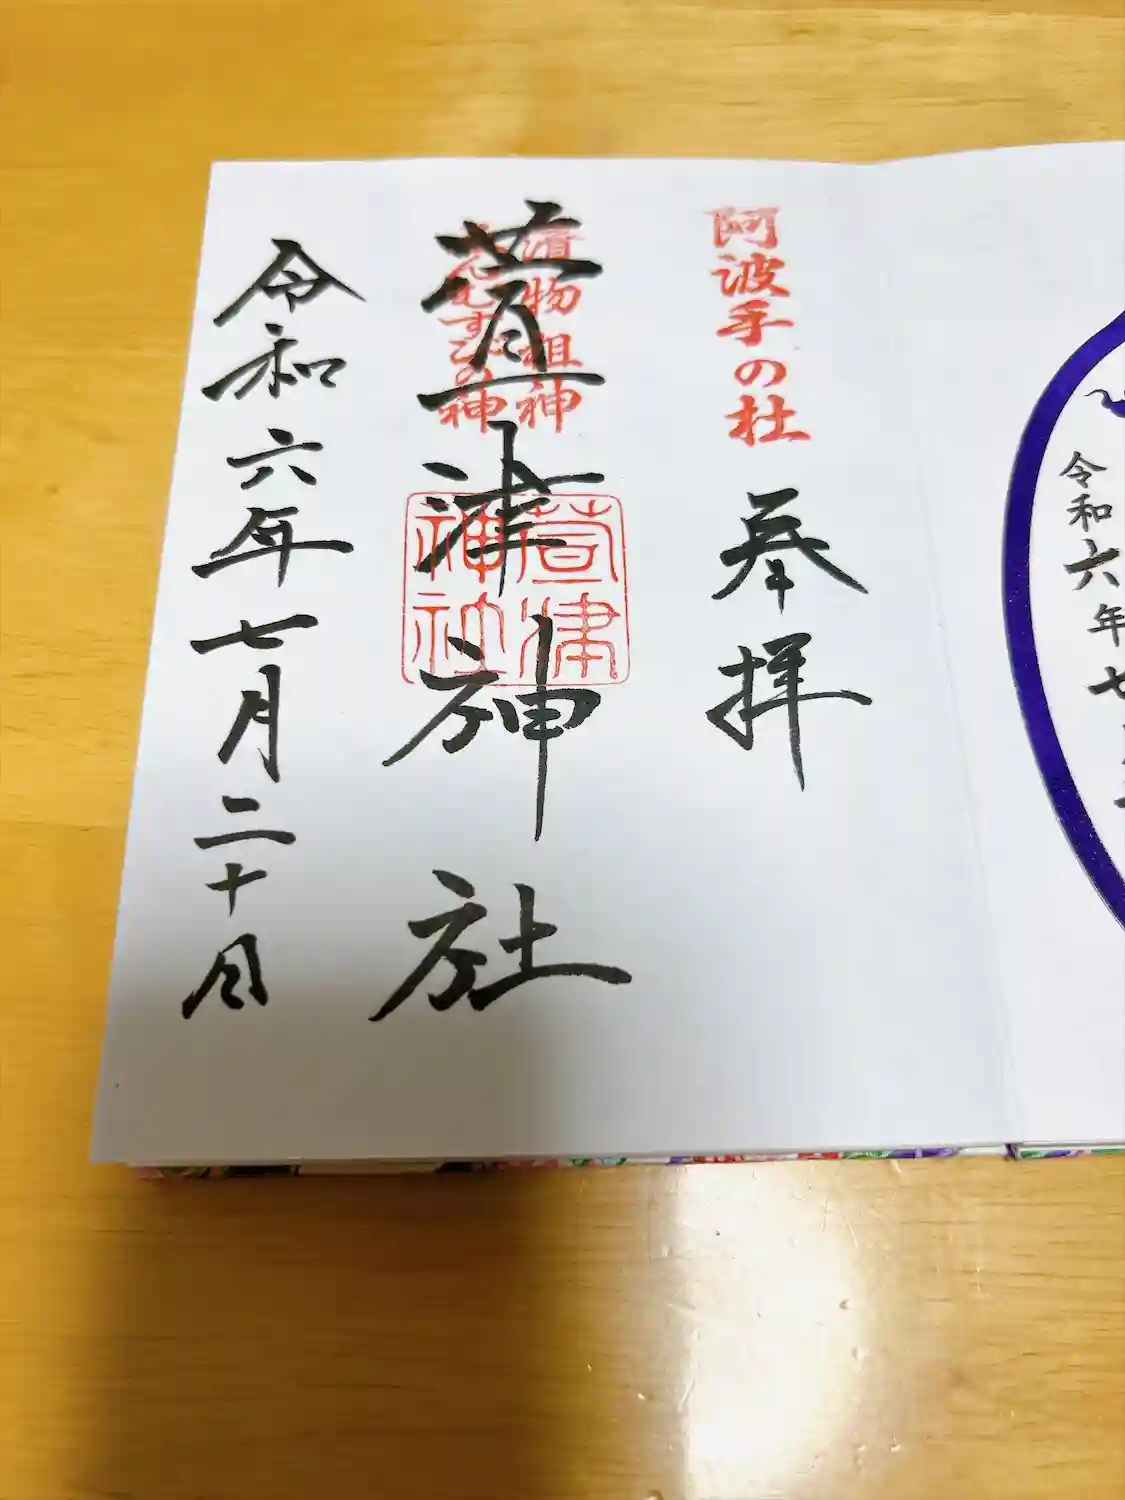 阿波手の杜
奉拝
漬物祖神
えんむすびの神
萱津神社
萱津神社
令和六年七月二十日
令和六年七